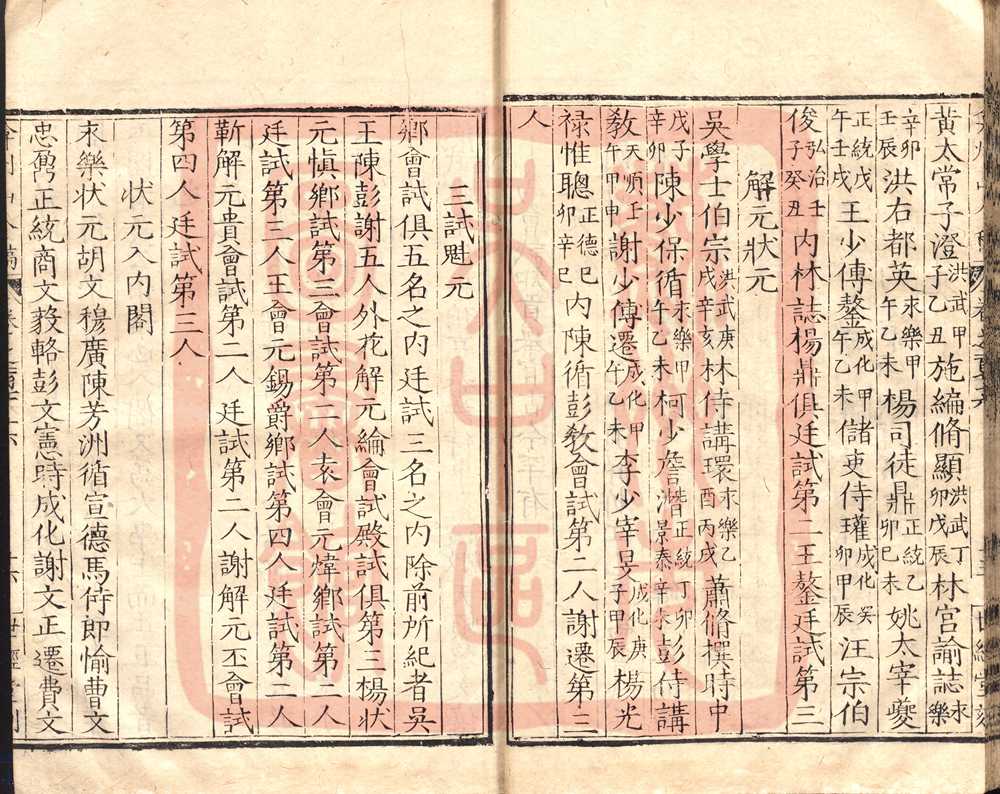 黃太常子澄洪武甲子乙丑施編脩顯洪武丁卯戊辰林宮諭誌永樂
辛卯壬辰洪右都英永樂甲午乙未楊司徒鼎正統乙卯己未姚太宰夔
正統戊午壬戌王少傅鏊成化甲午乙未儲吏侍瓘成化癸卯甲辰汪宗伯
俊弘治壬子癸丑內林誌楊鼎俱廷試第二王鏊廷試第三
解元狀元
吳學士伯宗洪武庚戌辛亥林侍講環永樂乙酉丙戌蕭脩撰時中
戊子辛卯陳少保循永樂甲午乙未柯少詹潛正統丁卯景泰辛未彭侍講
教天順壬午甲申謝少傅遷成化甲午乙未李少宰旻成化庚子甲辰楊光
祿惟聰正德己卯辛巳內陳循彭教會試第二人謝遷第三
人
三試魁元
鄉會試俱五名之內廷試三名之內除前所紀者吳
王陳彭謝五人外花解元綸會試殿試俱第三楊狀
元慎鄉試第三會試第二人袁會元煒鄉試第二人
廷試第三人王會元錫爵鄉試第四人廷試第二人
靳解元貴會試第二人廷試第二人謝解元丕會試
第四人廷試第三人
狀元入內閣
永樂狀元胡文穆廣陳芳洲循宣德馬侍郎愉曹文
忠鼐正統商文毅輅彭文憲時成化謝文正遷費文
世經堂刻